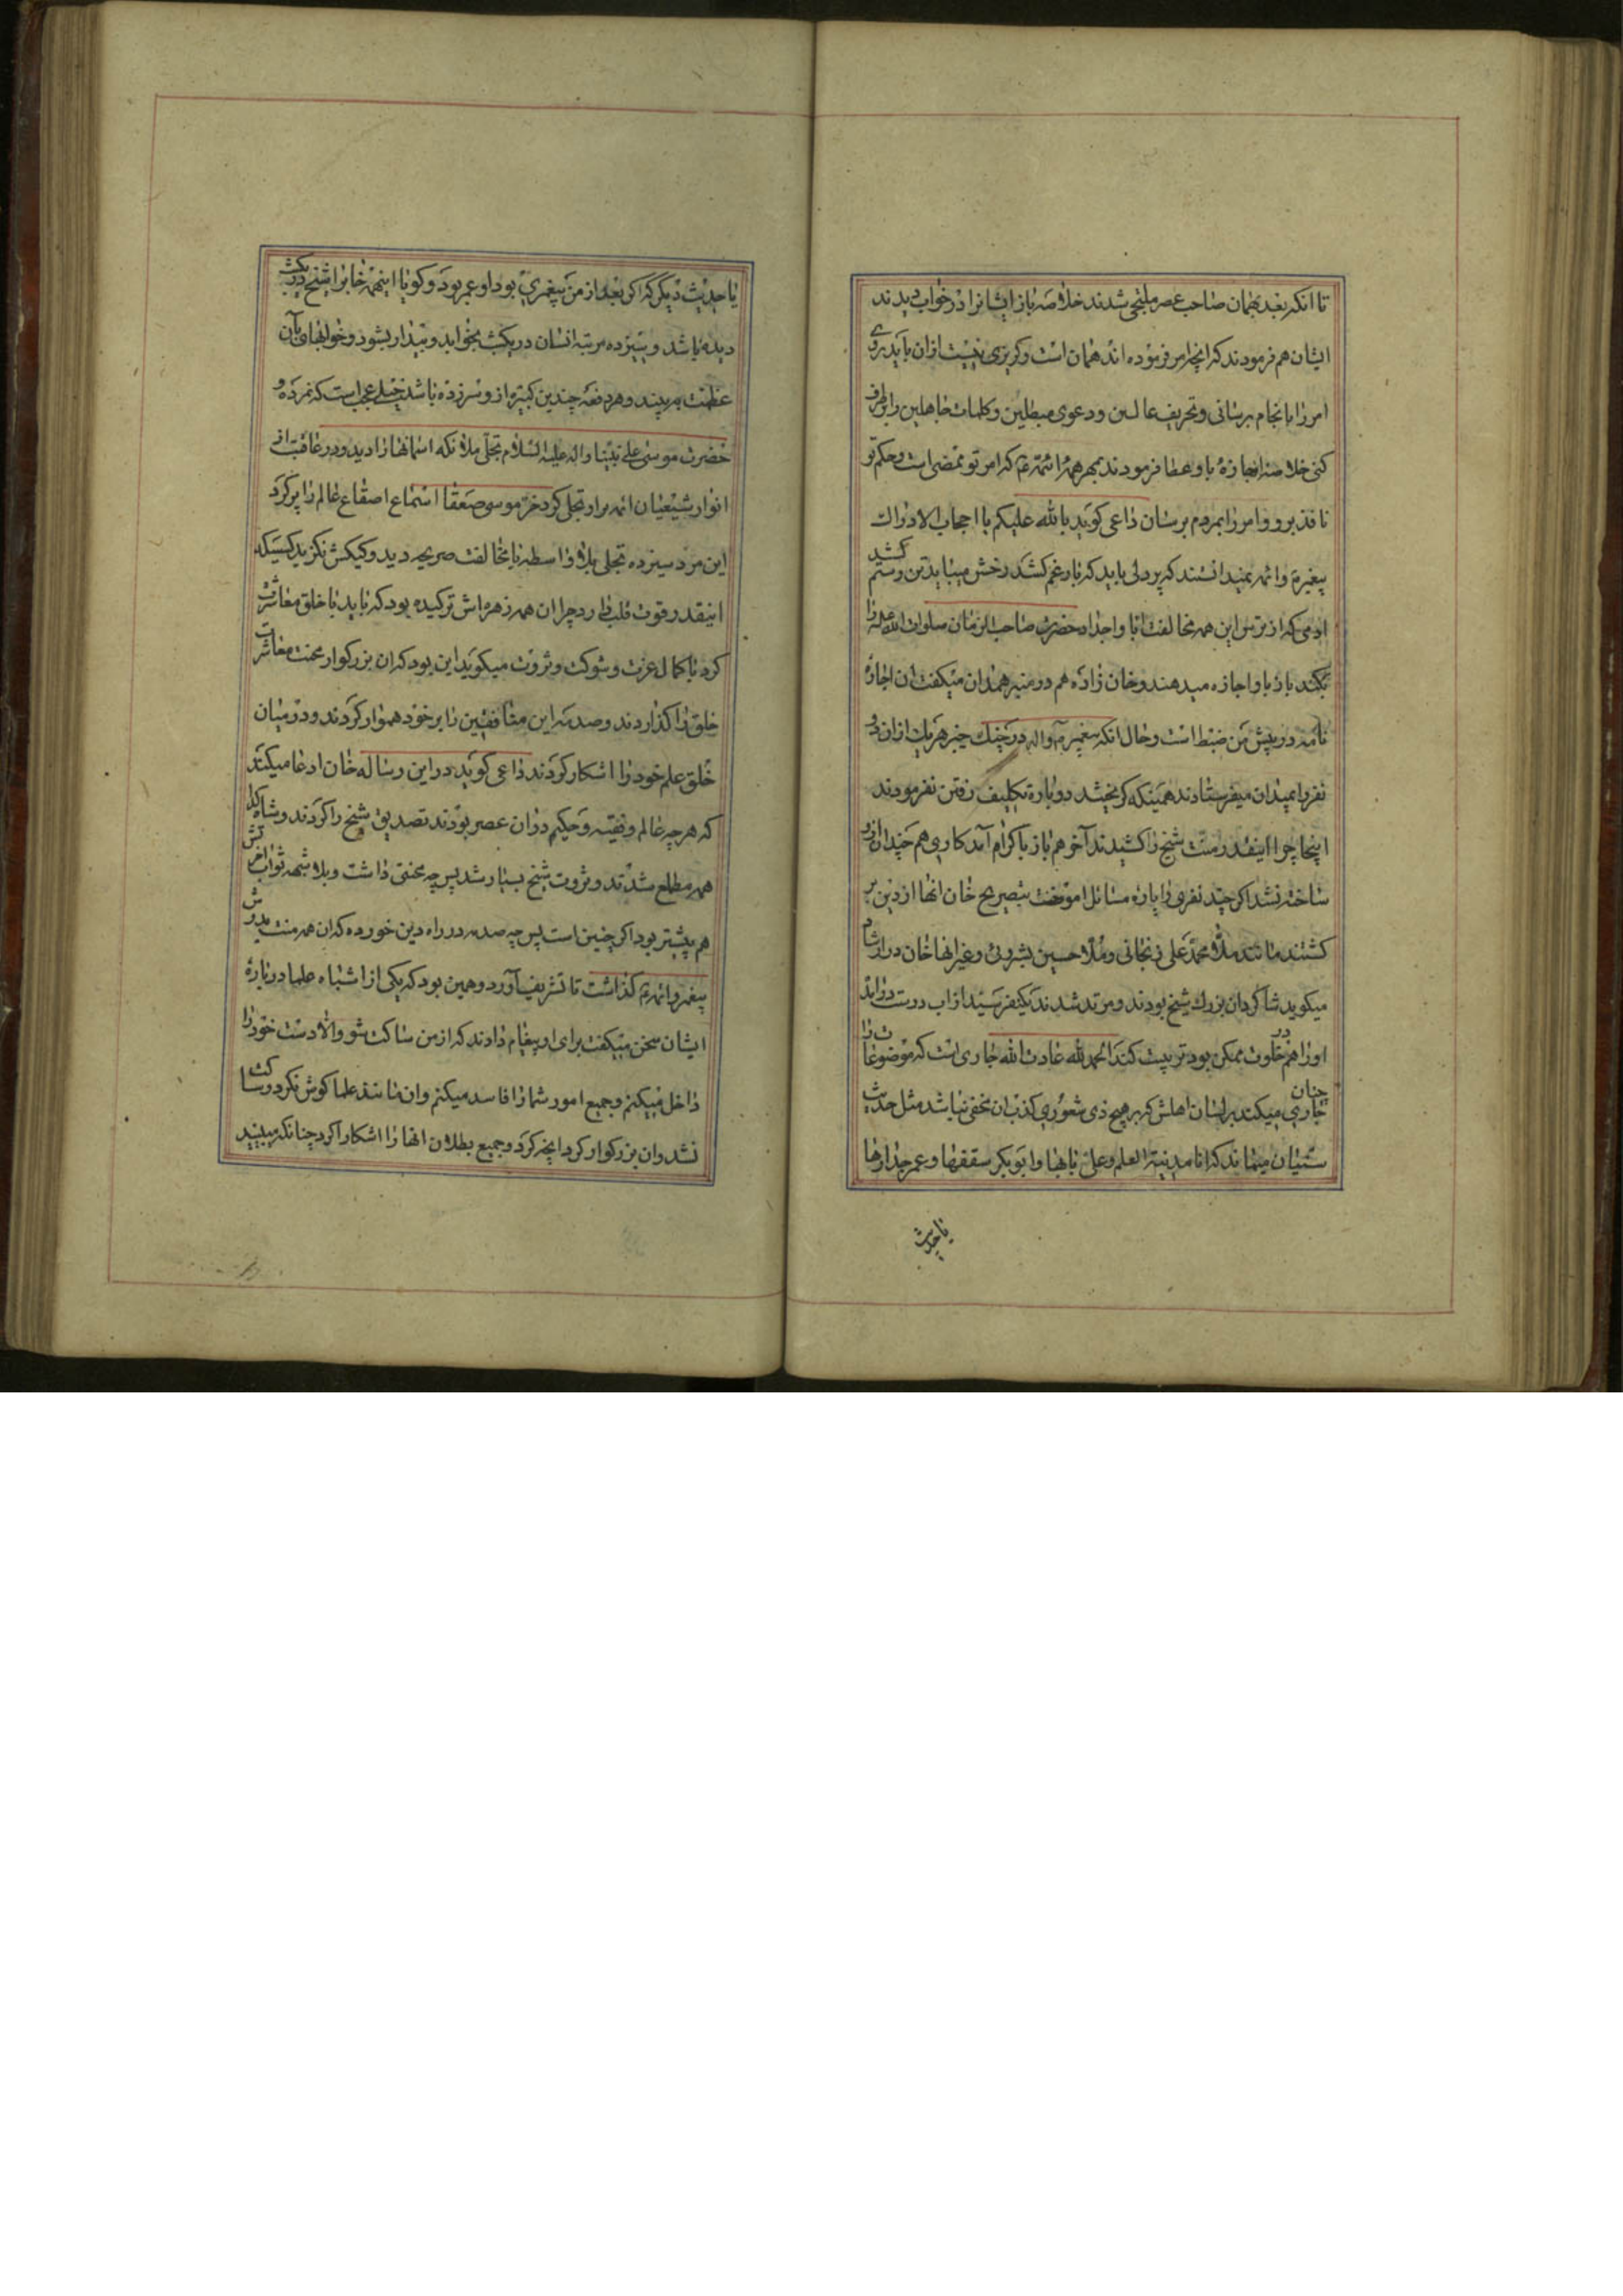 تا انکه بعد بهمان صاحب عصر ملتجی شدند خلاصه باز ایشانرا در خواب دیدند
ایشان هم فرمودند که انچه امر فرموده اند همان است و گریزی نیست ازان باید بروی
امر را بانجام برسانی و تحریف غالین و دعوی مبطلین و کلمات جاهلین را برطرف
کنی خلاصه اجازهٔ باو عطا فرمودند بمهر همهٔ ائمه ع که امر تو ممضی است و حکم تو
نافذ برو و امر را بمردم برسان داعی گوید بالله علیکم یا احجاب الادراک
پیغمبر ع و ائمه نمیدانستند که پر دلی باید که بار غم کشد رخش میباید تن رستم کشد
ادمی که از ترس این همه مخالفت ابا و اجداد حضرت صاحب الزمان صلوات الله علیه را
بکند باز باو اجازه میدهند و خان زاده هم در منبر همدان میگفت ان اجازهٔ
نامه در پیش من ضبط است و حال انکه پیغمبر ص واله در جنک خیبر هر یک ازان دو
نفر را بمیدان میفرستادند همینکه گریختند دوباره تکلیف رفتن نفرمودند
اینجا چرا اینقدر منت شیخ را کشیدند آخر هم باز با کرام آمد کاری هم چندان ازو
ساخته نشد اگر چند نفری را پارهٔ مسائل اموخت بتصریح خان انها از دین بر
گشتند مانند ملا محمد علی زنجانی و ملا حسین بشروئی و غیر انها خان در ارشاد
میگوید شاگردان بزرک شیخ بودند و مرتد شدند یکنفر سید از اب درست درامد
اورا هم در خلوت ممکن بود تربیت کنند الحمد لله عادت الله جاری است که موضوعات را
چنان جاری میکند بر لسان اهلش که بر هیچ ذی شعوری کذب ان مخفی نباشد مثل حدیث
سنیان میماند که انا مدینة العلم و علی بابها و ابو بکر سقفها و عمر جدارها
یا حدیث
یا حدیث دیگر که اگر بعد از من پیغمبری بود او عمر بود و گویا اینهمه خابرا شیخ در یکشب
دیده باشد و سیزده مرتبه انسان در یکشب بخوابد و بیدار بشود و خوابهای بآن
عظمت به بیند و هر دفعه چندین کبیره ازو سر زده باشد خیلی عجب است که نمرده و
حضرت موسی علی نبینا واله علیه السلام تجلی ملائکه اسمانها را دید و در عاقبت از
انوار شیعیان ائمه براو تجلی کرد خر موسی صعقا اسماع اصقاع عالم را پر کرد
این مرد سیزده تجلی بلا واسطه با مخالفت صریحه دید و کیکش نگزید کسیکه
اینقدر قوت قلب دارد چرا ان همه زهره اش ترکیده بود که باید با خلق معاشرت
کرد با کمال عزت و شوکت و ثروت میگوید این بود که ان بزرگوار محنت معاشرت
خلق را گذاردند و صدمهٔ این منافقین را بر خود هموار کردند و در میان
خلق علم خود را اشکار کردند داعی گوید در این رساله خان ادعا میکند
که هر چه عالم و فقیه و حکیم دران عصر بودند تصدیق شیخ را کردند و
همه مطلع شدند و ثروت شیخ بسیار شد پس چه محنتی داشت و بلا شبهه ثواب
هم بیشتر بود اگر چنین است پس چه صدمه در راه دین خورده که ان همه منت بدوش
پیغمبر و ائمه ع گذاشت تا تشریف آورد و همین بود که یکی از اشباه علما دربارهٔ
ایشان سخن میگفت برای او پیغام دادند که از من ساکت شو والا دست خود را
داخل میکنم و جمیع امور شما را فاسد میکنم و ان مانند علما گوش نکرد و ساکت
نشد و ان بزرگوار کرد انچه کرد و جمیع بطلان انها را اشکار کرد چنانکه میبینید